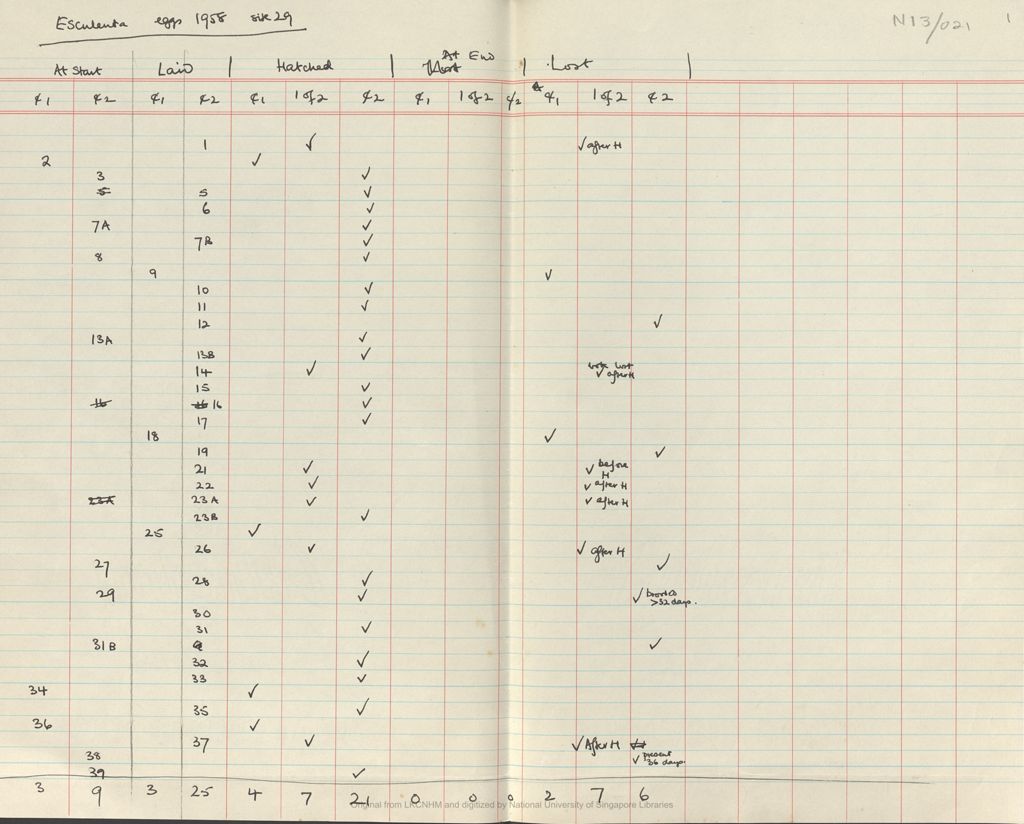 Esculenta eggs 1958 site 29
N13/021
1
At Start Laid Hatched At End Lost
¢1 ¢2 ¢1 ¢2 ¢1 1 of 2 ¢2 ¢1 1 of 2 ¢2 ¢1 1 of 2 ¢2
1 ✓ ✓ after H
2 ✓
3 ✓
5 5 ✓
6 ✓
7A ✓
7B ✓
8 ✓
9 ✓
10 ✓
11 ✓
12 ✓
13A ✓
13B ✓
14 ✓ ✓ after H
15 ✓
16 16 16 ✓
17 ✓
18 ✓
19 ✓
21 ✓ ✓ before H
22 ✓ ✓ after H
23A 23A ✓ ✓ after H
23B ✓
25 ✓
26 ✓ ✓ after H
27 ✓
28 ✓
29 ✓ ✓ brooded >32 days.
30
31 ✓
31B ✓
32 ✓
33 ✓
34 ✓
35 ✓
36 ✓
37 ✓ ✓ After H
38 ✓ present 36 days.
39 ✓
3 9 3 25 4 7 21 0 0 0 2 7 6
Original from LKCNHM and digitized by National University of Singapore Libraries